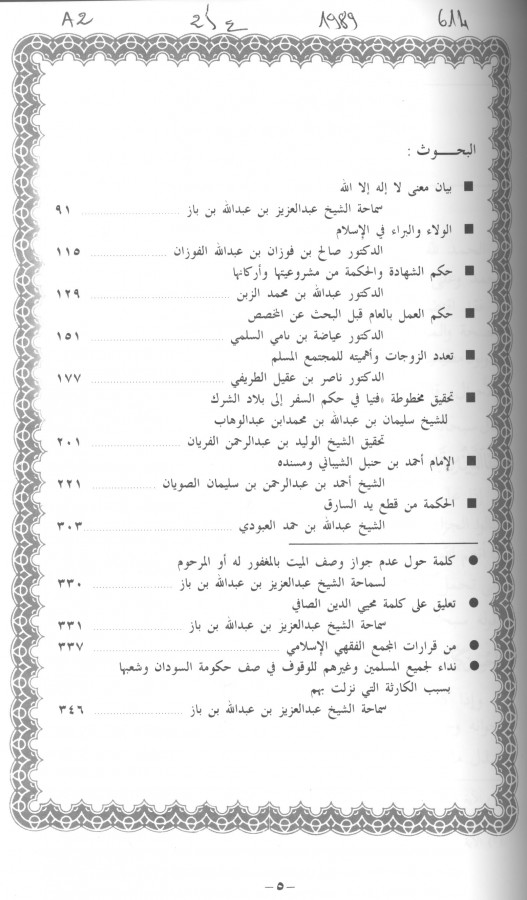 A2 ع 25 1989 614
البحـــوث :
■ بيان معنى لا إله إلا الله
سماحة الشيخ عبدالعزيز بن عبدالله بن باز ........ ٩١
■ الولاء والبراء في الإسلام
الدكتور صالح بن فوزان بن عبدالله الفوزان ........ ١١٥
■ حكم الشهادة والحكمة من مشروعيتها وأركانها
الدكتور عبدالله بن محمد الزبن ........ ١٢٩
■ حكم العمل بالعام قبل البحث عن المخصص
الدكتور عياضة بن نامي السلمي ........ ١٥١
■ تعدد الزوجات وأهميته للمجتمع المسلم
الدكتور ناصر بن عقيل الطريفي ........ ١٧٧
■ تحقيق مخطوطة «فتيا في حكم السفر إلى بلاد الشرك
للشيخ سليمان بن عبدالله بن محمدابن عبدالوهاب
تحقيق الشيخ الوليد بن عبدالرحمن الفريان ........ ٢٠١
■ الإمام أحمد بن حنبل الشيباني ومسنده
الشيخ أحمد بن عبدالرحمن بن سليمان الصويان ........ ٢٢١
■ الحكمة من قطع يد السارق
الشيخ عبدالله بن حمد العبودي ........ ٣٠٣
● كلمة حول عدم جواز وصف الميت بالمغفور له أو المرحوم
لسماحة الشيخ عبدالعزيز بن عبدالله بن باز ........ ٣٣٠
● تعليق على كلمة محيي الدين الصافي
سماحة الشيخ عبدالعزيز بن عبدالله بن باز ........ ٣٣١
● من قرارات المجمع الفقهي الإسلامي ........ ٣٣٧
● نداء لجميع المسلمين وغيرهم للوقوف في صف حكومة السودان وشعبها
بسبب الكارثة التي نزلت بهم
سماحة الشيخ عبدالعزيز بن عبدالله بن باز ........ ٣٤٦
– ٥ –